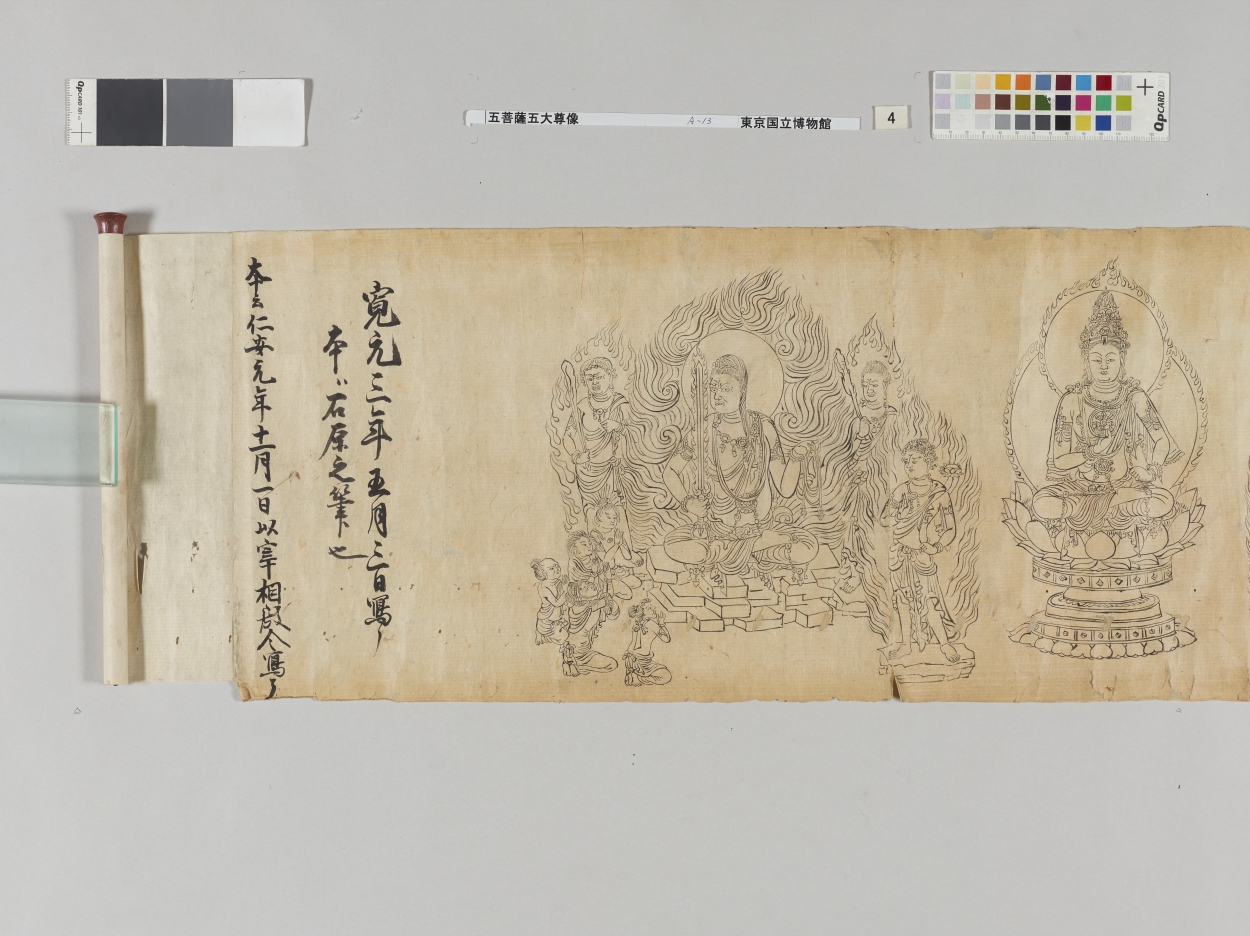 五菩薩五大尊像 A-13 東京国立博物館
4
QpCARD 101
QpCARD
寛元三年五月三日寫了
本ハ石原之筆也
本云仁安元年十一月一日以宰相殿令寫了